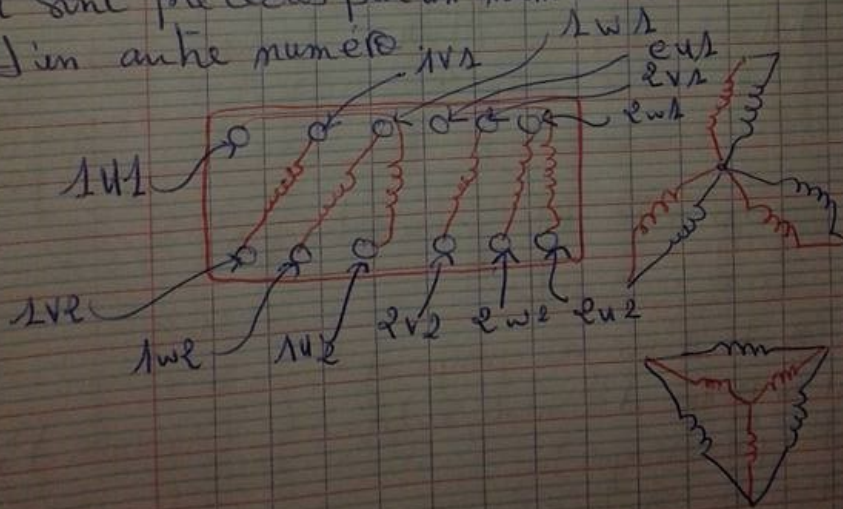 sont
d'un autre numéro
1V1
1W1
2U1
2V1
2W1
1U1
1V2
1W2
1U2
2V2
2W2
2U2